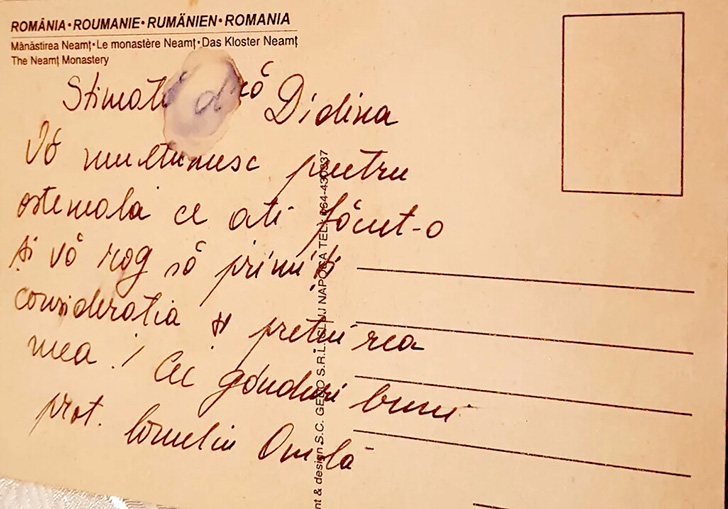 ROMÂNIA•ROUMANIE•RUMÄNIEN•ROMANIA
Mănăstirea Neamţ•Le monastère Neamţ•Das Kloster Neamţ
The Neamţ Monastery
Stimată Didina
Vă multumesc pentru
osteneala ce ati făcut-o
și vă rog să primiti
consideratia și pretuirea
mea! Cu gânduri buni
prot. Corneliu
nt & design S.C. GEDO S.R.L. CLUJ NAPOCA TEL. 064-430937